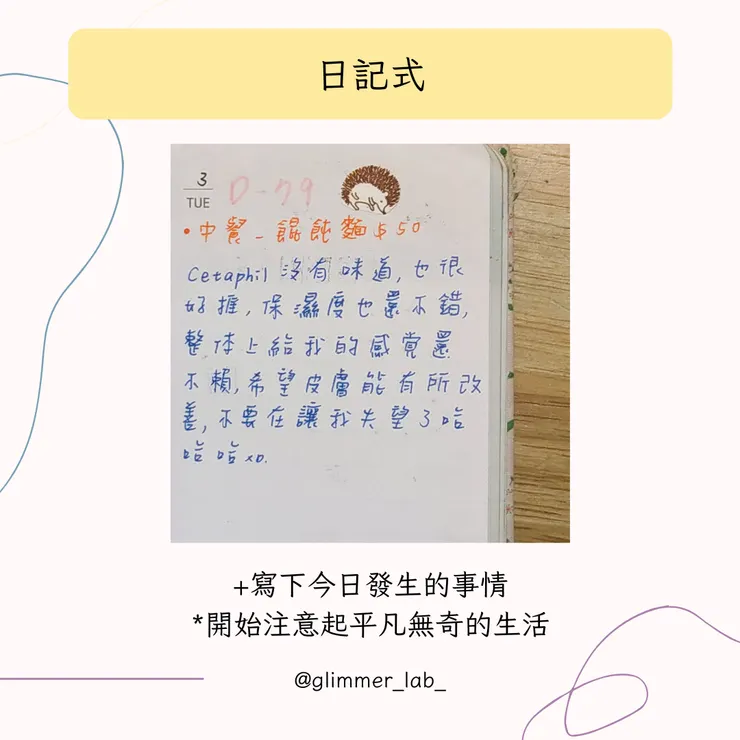 日記式
3
TUE
D-79
•中餐_餛飩麵$50
Cetaphil 沒有味道,也很
好推,保濕度也還不錯,
整体上給我的感覚還
不賴,希望皮膚能有所改
善,不要在讓我失望了咕
咕咕xD.
+寫下今日發生的事情
*開始注意起平凡無奇的生活
@glimmer_lab_